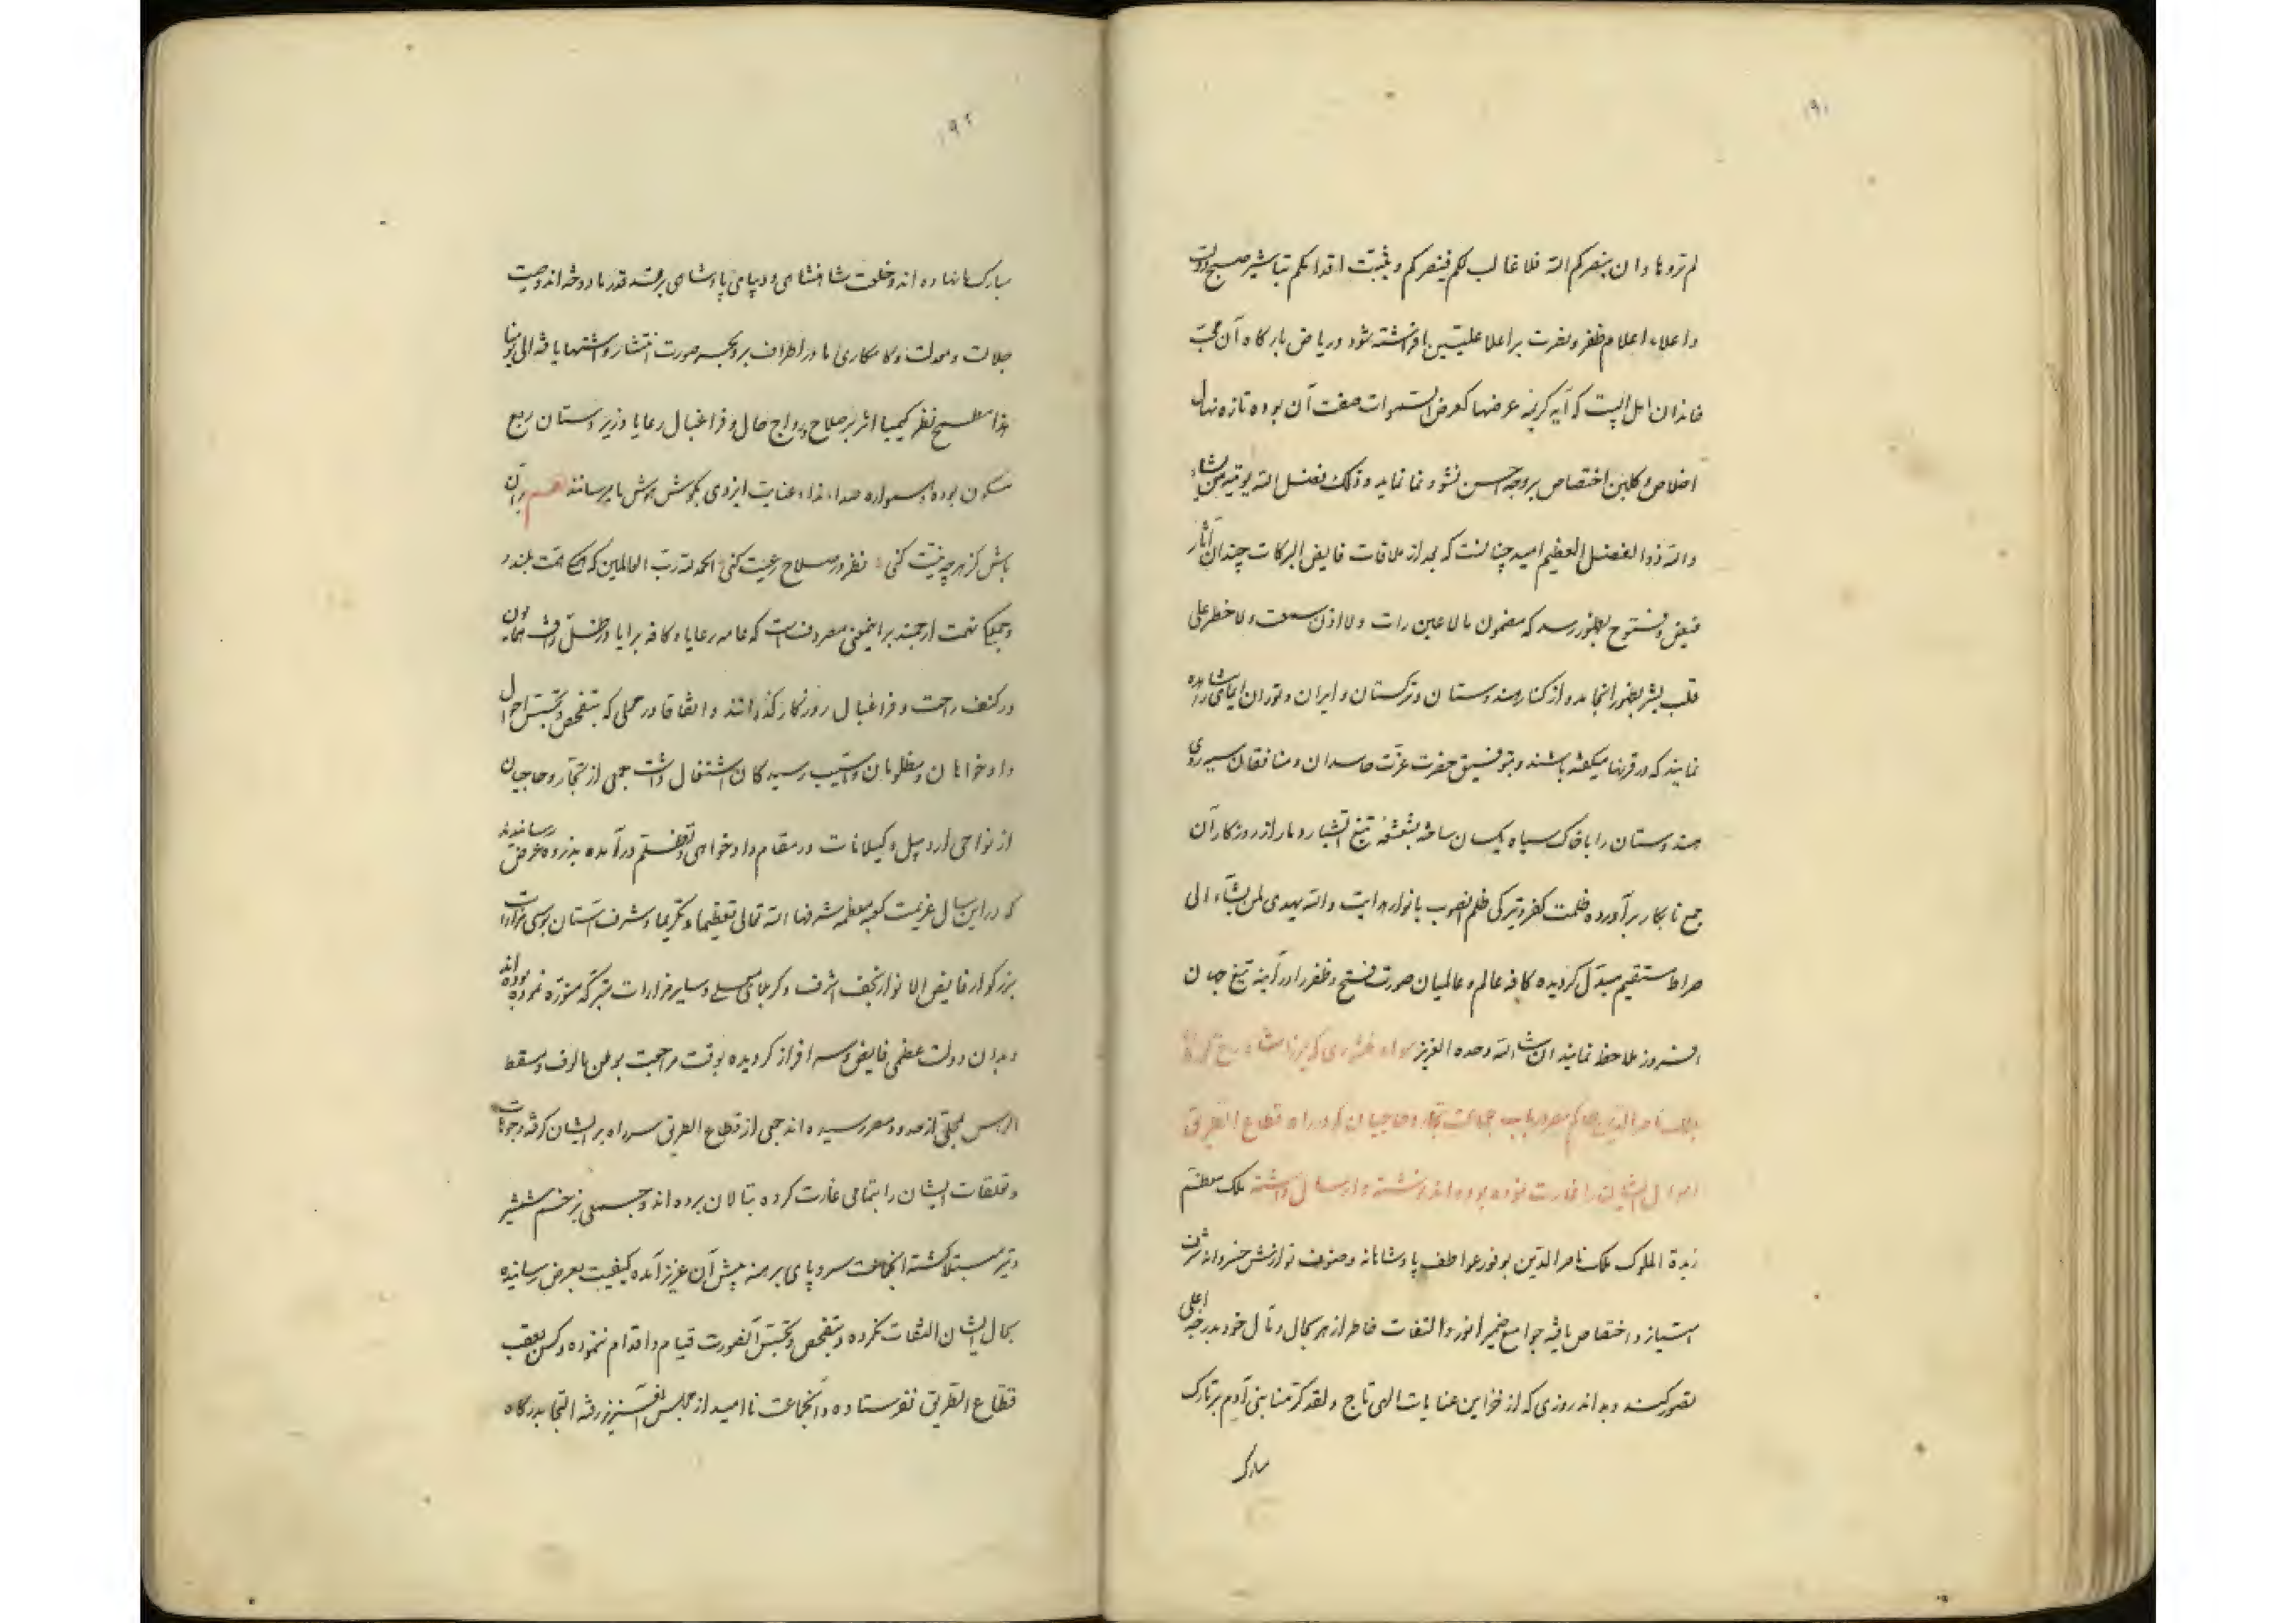 ۱۹۱
لم تروها و ان ینصرکم الله فلا غالب لکم فینصرکم و یثبت اقدامکم تباشیر صبح دولت
و اعلاء اعلام ظفر و نصرت بر اعلا علیین افراشته شود و ریاض بارگاه آن محب
خاندان اهل البیت که آیه کریمه عرضها کعرض السموات صفت آن بوده تازه نهال
اخلاص و گلبن اختصاص بر وجه احسن نشو و نما نماید و ذلک فضل الله یوتیه من یشاء
والله ذو الفضل العظیم امید چنانست که بعد از ملاقات فایض البرکات چندان آثار
فیض و فتوح بظهور رسد که مضمون ما لا عین رات و لا اذن سمعت و لا خطر علی
قلب بشر بظهور انجامد و از کنار هندوستان و ترکستان و ایران و توران ایمای مشاهده
نمایند که در قرنها میگفته باشند و بتوفیق حضرت عزت حاسدان و منافقان سیه روی
هندوستان را با خاک سیاه یکسان ساخته بشعشعه تیغ آتشبار دمار از روزگار آن
جمع نابکار برآورده ظلمت کفر و تیرگی ظلم بانوار هدایت والله یهدی لمن یشاء الی
صراط مستقیم مبدل گردیده کافه عالم و عالمیان صورت فتح و ظفر را در آینه تیغ جهان
افروز ملاحظه نمایند ان شاء الله وحده العزیز سواد منشوری که میرزا شاهرخ
بملک ناصر الدین حاکم مصر در باب جماعت تجار و حاجیان که در راه قطاع الطریق
اموال ایشان را غارت نموده بوده اند نوشته و ارسال داشته ملک معظم
زبدة الملوک ملک ناصر الدین بوفور عواطف پادشاهانه و صنوف نوازش خسروانه شرف
امتیاز و اختصاص یافته جوامع ضمیر انور و التفات خاطر ازهر بحال و مآل خود بدرجه اعلی
تصور کند و بداند روزی که از خزاین عنایات الهی تاج و لقد کرمنا بنی آدم بر تارک
مبارک
۱۹۲
مبارک ما نهاده اند و خلعت شاهنشاهی و دیبای پادشاهی بر قد قدر ما دوخته اند و صیت
جلالت و معدلت و کامکاری ما در اطراف بر و بحر صورت انتشار و اشتهار یافته الی یومنا
هذا مطمح نظر کیمیا اثر بر صلاح و رواج حال و فراغبال رعایا و زیردستان ربع
مسکون بوده و همواره صداء نداء عنایت ایزدی بگوش هوش ما میرسانند هم بر آن
باش کز هر چه نیت کنی نظر در صلاح رعیت کنی الحمد لله رب العالمین که همگی همت بلند و
و جمیع نهمت ارجمند بر اینمعنی مصروفست که عامه رعایا و کافه برایا در ظل رافت همایون
در کنف راحت و فراغبال روزگار گذرانند و اتفاقا در محلی که بتفحص و تجسس احوال
دادخواهان و مظلومان و آسیب رسیدگان اشتغال داشت جمعی از تجار و حاجیان
از نواحی اردبیل و گیلانات در مقام دادخواهی و تظلم درآمده بذروه عرض رسانیدند
که در این سال عزیمت کعبه معظمه شرفها الله تعالی تعظیما و تکریما و شرف آستان بوسی مزارات
بزرگوار فایض الانوار نجف اشرف و کربلای معلی و سایر مزارات متبرکه منوره نموده بوده اند
و بدان دولت عظمی فایض و سرافراز گردیده بوقت مراجعت بوطن مالوف و مسقط
الراس بمحلی از حدود مصر رسیده اند جمعی از قطاع الطریق سر راه بر ایشان گرفته و جهات
و تعلقات ایشان را بتمامی غارت کرده بتالان برده اند و جمعی بزخم شمشیر
و تیر مبتلا گشته اینجماعت سر و پای برهنه پیش آن عزیز آمده کیفیت بعرض رسانیده
بحال ایشان التفات نکرده و بتفحص و تجسس آنصورت قیام و اقدام ننموده و کس بعقب
قطاع الطریق نفرستاده و آنجماعت ناامید از مجلس آن عزیز رفته التجا بدرگاه